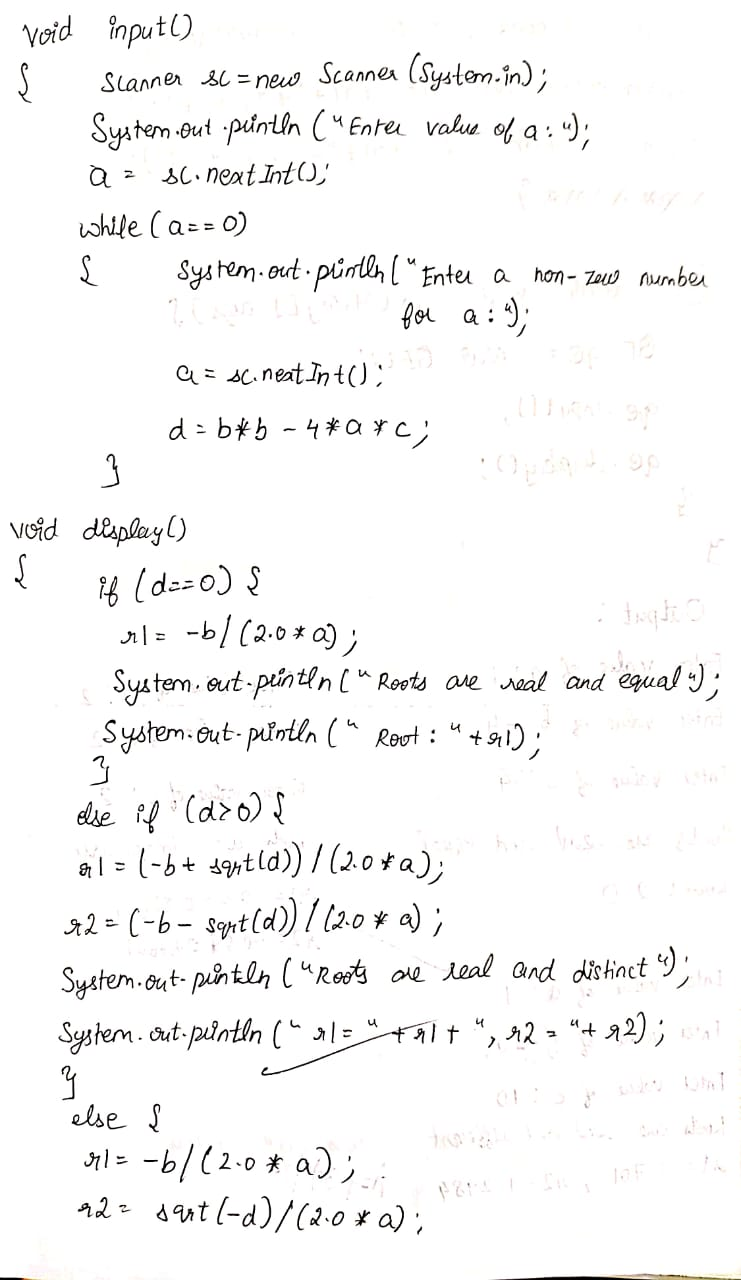 void input()
{ Scanner sc = new Scanner (System.in);
System.out.println ("Enter value of a: ");
a = sc.nextInt();
while (a==0)
{ System.out.println ("Enter a non-zero number
for a: ");
a = sc.nextInt();
d = b*b - 4*a*c;
}
void display()
{ if (d==0) {
r1 = -b/(2.0*a);
System.out.println ("Roots are real and equal");
System.out.println (" Root : " + r1);
}
else if (d>0) {
r1 = (-b + sqrt(d)) / (2.0*a);
r2 = (-b - sqrt(d)) / (2.0 * a);
System.out.println ("Roots are real and distinct");
System.out.println (" r1 = " + r1 + ", r2 = " + r2);
}
else {
r1 = -b/(2.0 * a);
r2 = sqrt (-d)/(2.0 * a);